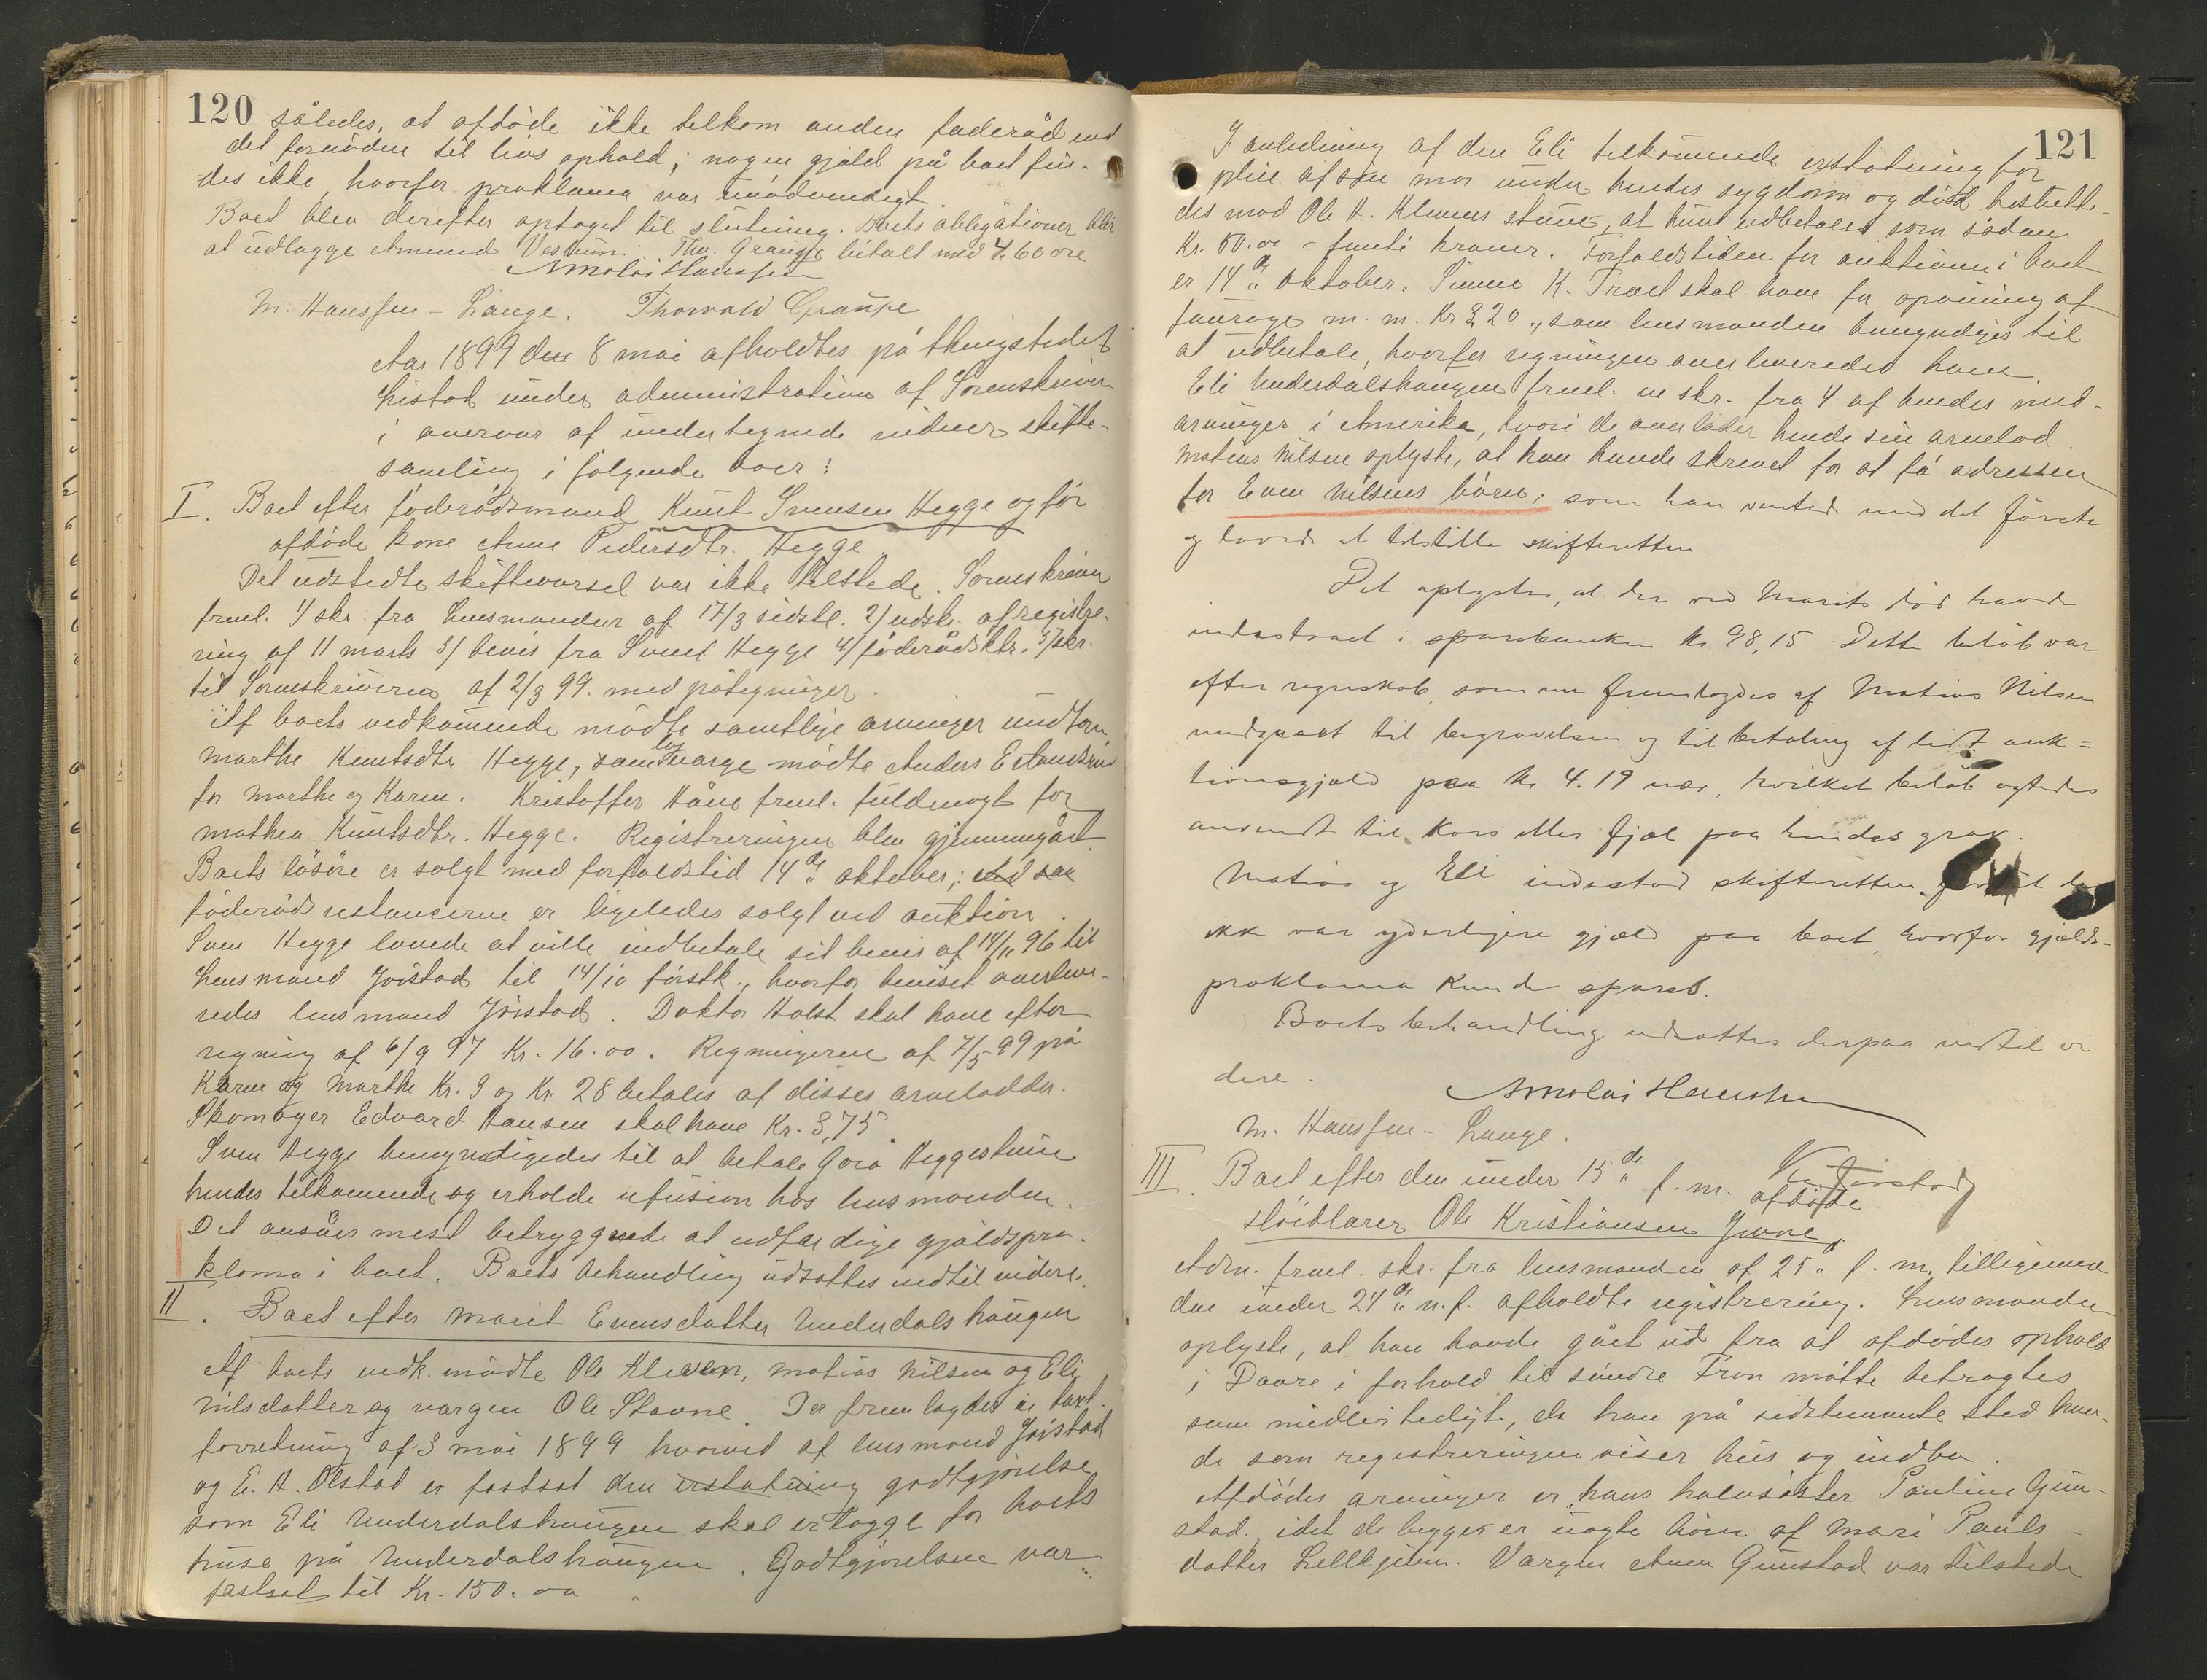 120
således, at afdöde ikke tilkom anden föderåd end
det fornödne til livs ophold; nogen gjæld på boet fin-
des ikke, hvorfor proklama var unödvendigt.
Boet blev derefter optaget til slutning. Boets obligationer blir
at udlægge Amund Vestum. Thv. Graupe betalt med 4,60 øre
Nikolai Hanssen
M. Hanssen-Lange. Thorvald Graupe
Aar 1899 den 8 mai afholdtes på thingstedet
Listad under administration af Sorenskriver
i overvær af undertegnede vidner skifte-
samling i følgende boer:
I. Boet efter föderådsmand Knut Svensen Hegge og før
afdöde kone Anne Pedersdtr. Hegge.
Det udstedte skiftevarsel var ikke tilstede. Sorenskriver
freml. 1/ skr. fra lensmanden af 17/3 sidstl. 2/ udskr. af registre-
ring af 11 marts 3/ bevis fra Svend Hegge 4/ föderådsktr. 5/ skr.
til Sorenskriveren af 2/3 99. med påtegninger.
Af boets vedkommende mödte samtlige arvinger undtagen
Marthe Knutsdtr. Hegge, som lagværge mödte Anders
for Marthe og Karen. Kristoffer freml. fuldmagt for
Mathea Knutsdtr. Hegge. Registreringen blev gjennemgået.
Boets lösöre er solgt med forfaldstid 14de oktober;
föderåds restancerne er ligeledes solgt ved auktion.
Sven Hegge lovede at ville indbetale sit bevis af 14/11 96 til
Lensmand Jöistad til 14/10 förstk., hvorfor beviset overleve-
redes lensmand Jöistad. Doktor Holst skal have efter
regning af 6/9 97 Kr. 16.00. Regningerne af 7/5 99 på
Karen og Marthe Kr. 9 og Kr. 28 betales af disses arvelodder.
Skomager Edvard Hansen skal have Kr. 3,75.
Sven Hegge bemyndigedes til at betale Heggestuen
hendes tilkommende og erholde refusion hos lensmanden.
Det ansåes mest betryggende at udfærdige gjældspro-
klama i boet. Boets behandling udsattes indtil videre.
II. Boet efter Marit Evensdatter Underdalshaugen
Af boets vedk. mödte Ole Kleven, Matias Nilsen og Eli
Nilsdatter og værgen Ole Stavne. Der fremlagdes en taxt-
forretning af 3 mai 1899 hvorved af lensmand Jöistad
og E. H. Olstad er fastsat den erstatning godtgjörelse
som Eli Underdalshaugen skal erlægge for boets
huse på Underdalshaugen. Godtgjörelsen var
fastsat til Kr. 150.00
121
I anledning af den Eli tilkommende erstatning for
pleie af sin mor under hendes sygdom og död bestemte-
des mod Ole H. Klevens stemme, at hun udbetales som sådan
Kr. 50.00 - femti kroner. Forfaldstiden for auktionen i boet
er 14de oktober. Simen K. Træet skal have for opsining af
m. m. Kr 3,20, som lensmanden bemyndiges til
at udbetale, hvorfor regningen overleveredes ham.
Eli Underdalshaugen freml. en skr. fra 4 af hendes med-
arvinger i Amerika, hvori de overlader hende sin arvelod.
Matias Nilsen oplyste, at han havde skrevet for at få adressen
for Even Nilsens börn, som han ventede med det første
og lovede at tilstille skifteretten.
Det oplystes, at der ved Marits död havde
indestaaet i sparebanken Kr. 98,15. Dette belöb var
efter regnskab, som nu fremlagdes af Matias Nilsen
medgaaet til begravelsen og til betaling af lidt auk=
tionsgjæld paa Kr 4.19 nær, hvilket belöb agtedes
anvendt til Kors eller fjæl paa hendes grav.
Matias og Eli indestod skifteretten for at der
ikke var yderligere gjæld paa boet, hvorfor gjælds-
proklama kunde spares.
Boets behandling udsattes derpaa indtil vi
dere.
Nikolai Hanssen
M. Hanssen-Lange.
Jöistad
III. Boet efter den under 15de f. m. afdöde
slöidlærer Ole Kristiansen
Adm. freml. skr. fra lensmanden af 25. f. m. tilligemed
den under 24de n. f. afholdte registrering. Lensmanden
oplyste, at han havde gået ud fra at afdödes ophold
i Dovre i forhold til söndre Fron måtte betragtes
som midlertidigt, da han på sidstnævnte sted hav-
de som registreringen viser hus og indbo.
Afdödes arvinger er hans halvsöster Pauline Gun-
stad, idet de begge er uægte börn af Mari Pauls-
datter Lillkjenn. Værgen Aman Gunstad var tilstede